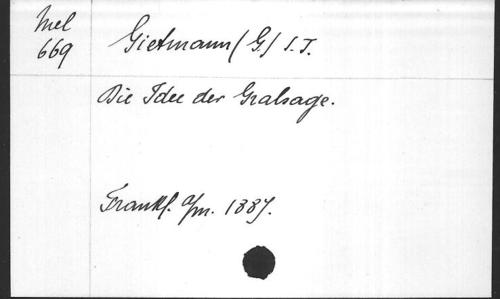 Mel
669
Gietmann (G.) S. J.
Die Idee der Gralsage.
Frankf. a/m. 1887.